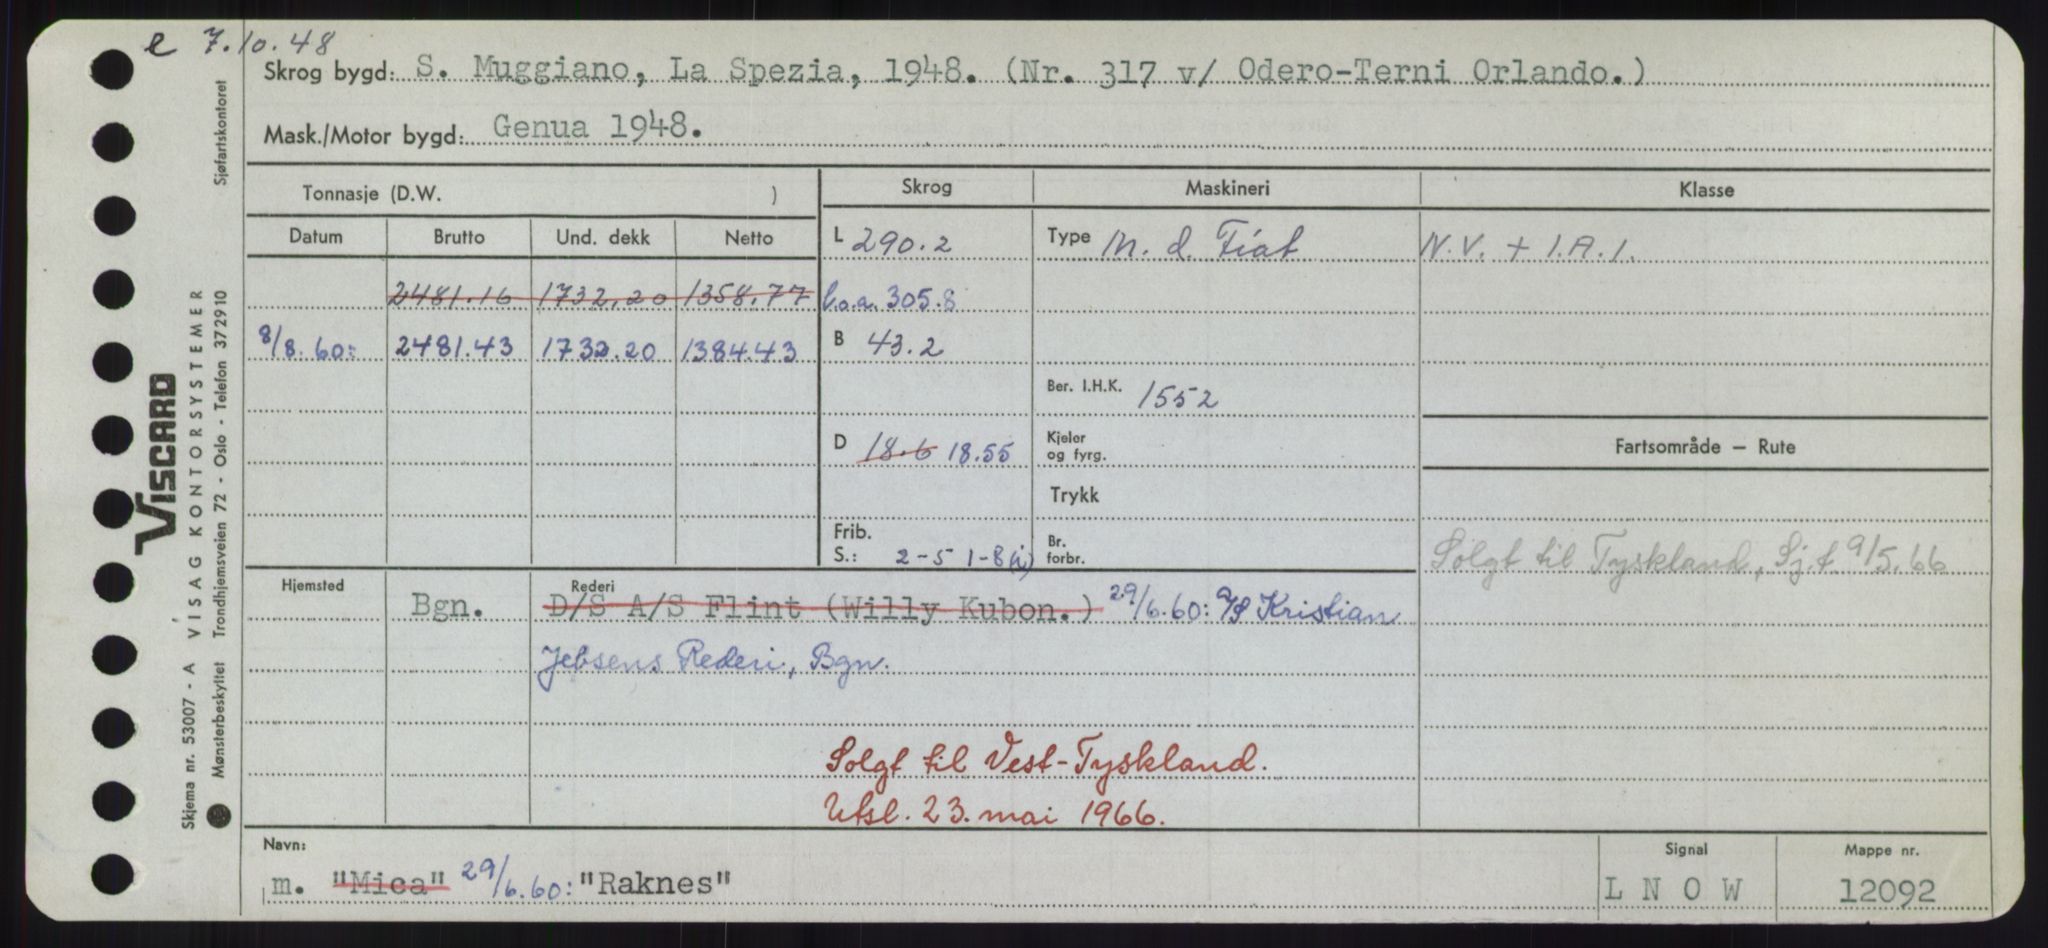 e 7.10.48
Skrog bygd: S. Muggiano, La Spezia, 1948. (Nr. 317 v/ Odero-Terni Orlando.)
Mask./Motor bygd: Genua 1948.
Tonnasje (D.W. )
Skrog
Maskineri
Klasse
Datum Brutto Und. dekk Netto
L 290.2
Type M. d. Fiat
N.V. + I.A.I.
2481.16 1732.20 1358.77
l.o.a. 305.8
8/8.60: 2481.43 1732.20 1384.43
B 43.2
Ber. I.H.K. 1552
D 18.6 18.55
Kjeler
og fyrg.
Fartsområde – Rute
Trykk
Frib.
S.: 2-5 1-8(i)
Br.
forbr.
Solgt til Tyskland, Sj.f 9/5.66
Hjemsted Rederi
Bgn. D/S A/S Flint (Willy Kubon.) 29/6.60: A/S Kristian
Jebsens Rederi, Bgn.
Solgt til Vest-Tyskland.
Utsl. 23. mai 1966.
Navn:
m. "Mica" 29/6.60: "Raknes"
Signal
L N O W
Mappe nr.
12092
Skjema nr. 53007 - A VISAG KONTORSYSTEMER
VISCARD
Mønsterbeskyttet Trondhjemsveien 72 - Oslo - Telefon 372910 Sjøfartskontoret